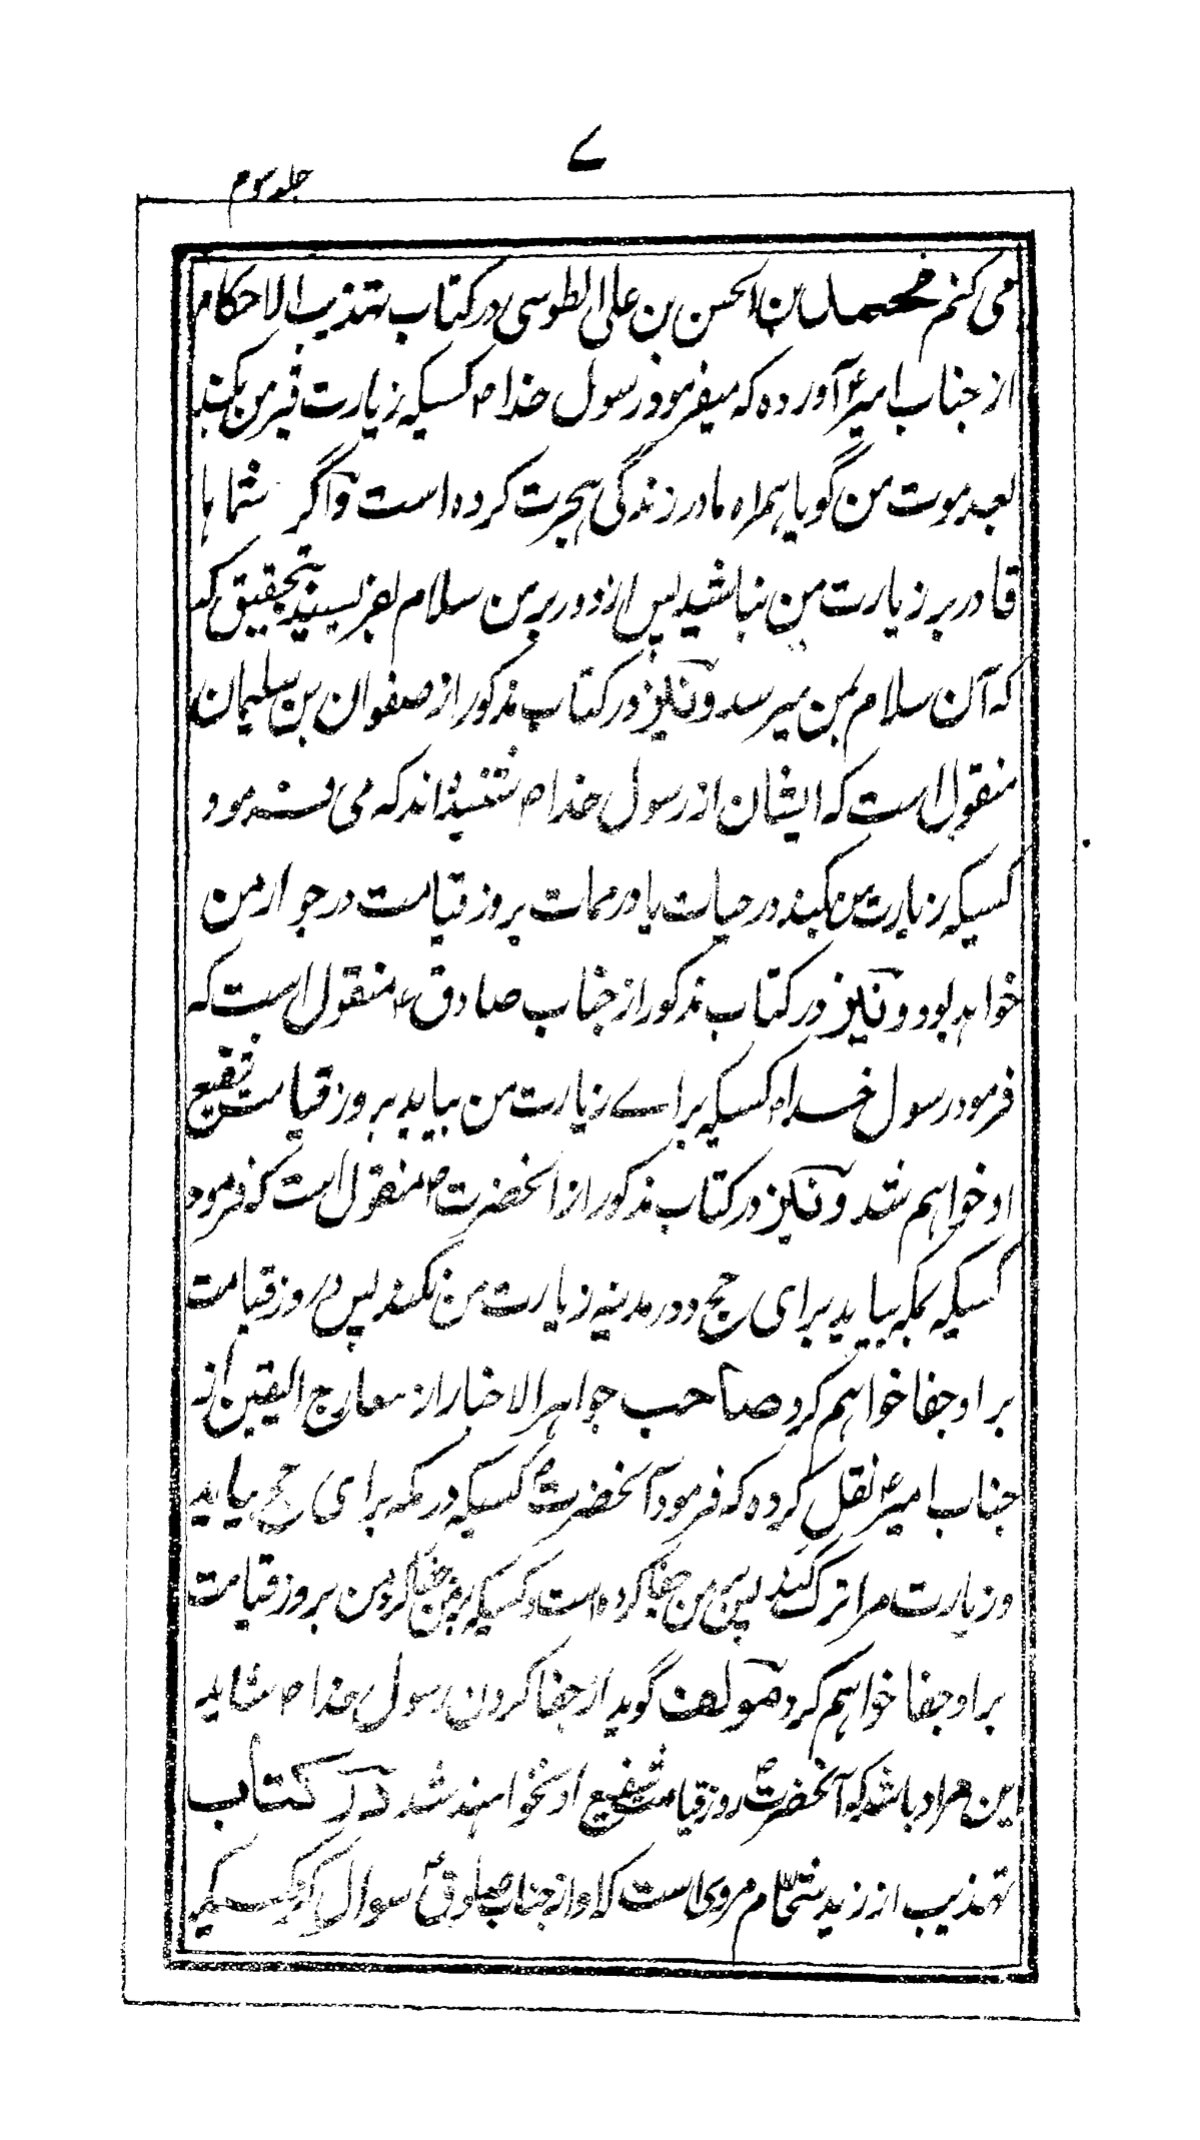 ۷
جلد سوم
می کنم محمد بن الحسن بن علی الطوسی در کتاب تهذیب الاحکام
از جناب امیرؑ آورده که میفرمود رسول خداؐ کسیکه زیارت قبر من بکند
بعد موت من گویا همراه ما در زندگی هجرت کرده است و اگر شما ها
قادر بر زیارت من نباشید پس از دور بر من سلام بفرستید بتحقیق که
که آن سلام بمن میرسد و نیز در کتاب مذکور از صفوان بن سلیمان
منقول است که ایشان از رسول خدا ص شنیده اند که می فرمود
کسیکه زیارت من بکند در حیات یا در ممات بروز قیامت در جوار من
خواهد بود و نیز در کتاب مذکور از جناب صادق ع منقول است که
فرمود رسول خدا ص کسیکه براے زیارت من بیاید بروز قیامت شفیع
او خواهم شد و نیز در کتاب مذکور از آنحضرت ص منقول است که فرمود
کسیکه بمکه بیاید برای حج و در مدینه زیارت من نکند پس در روز قیامت
بر او جفا خواهم کرد صاحب جواهر الاخبار از معارج الیقین از
جناب امیر ع نقل کرده که فرمود آنحضرت ص کسیکه در مکه برای حج بیاید
و زیارت مرا ترک کند پس من جفا کرده است و کسیکه بر من جفا کرد من بروز قیامت
بر او جفا خواهم کرد مؤلف گوید از جفا کردن رسول خدا ص شاید
این مراد باشد که آنحضرت ص روز قیامت شفیع او نخواهند شد در کتاب
تهذیب از زید شحام مروی است که او از جناب صادق ع سوال کرد کسیکه